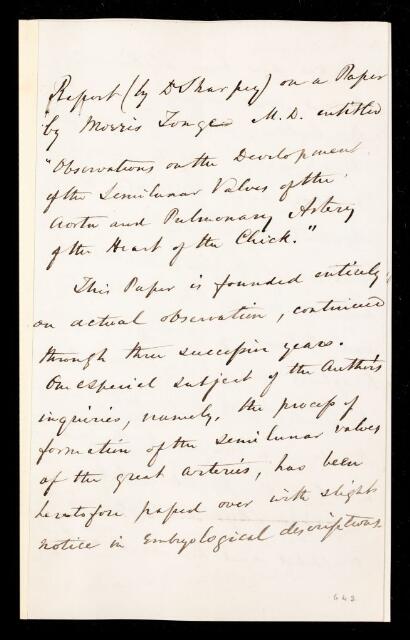 Report (by Dr Sharpey) on a Paper
by Morris Tonge M.D. entitled
"Observations on the Development
of the Semilunar Valves of the
Aorta and Pulmonary Artery
of the Heart of the Chick."
This Paper is founded entirely
on actual observation, continued
through three successive years.
One especial subject of the Author's
inquiries, namely, the process of
formation of the semilunar valves
of the great arteries, has been
heretofore passed over with slight
notice in Embryological descriptions
642